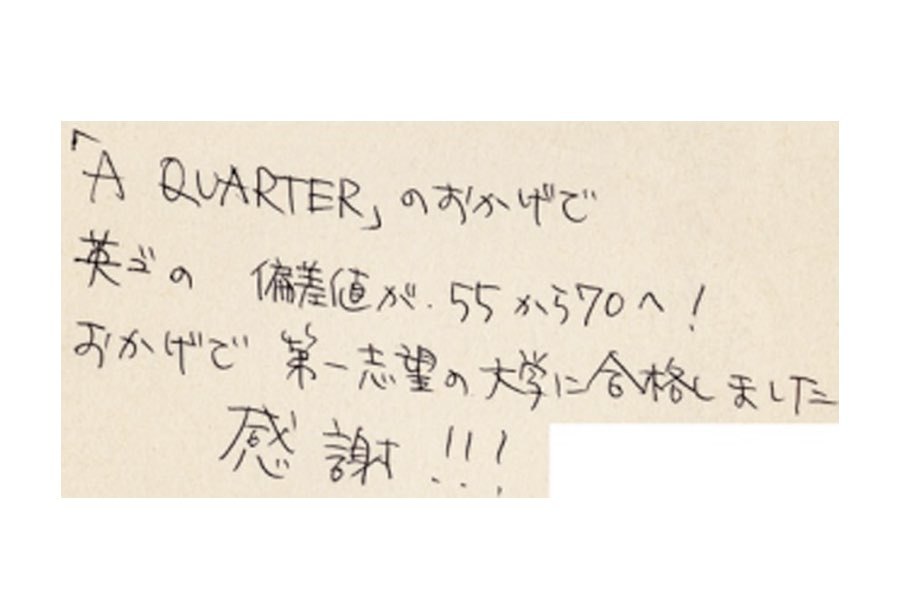 「A QUARTER」のおかげで
英ゴの 偏差値が、55から70へ！
おかげで 第一志望の大学に合格しました
感謝!!!